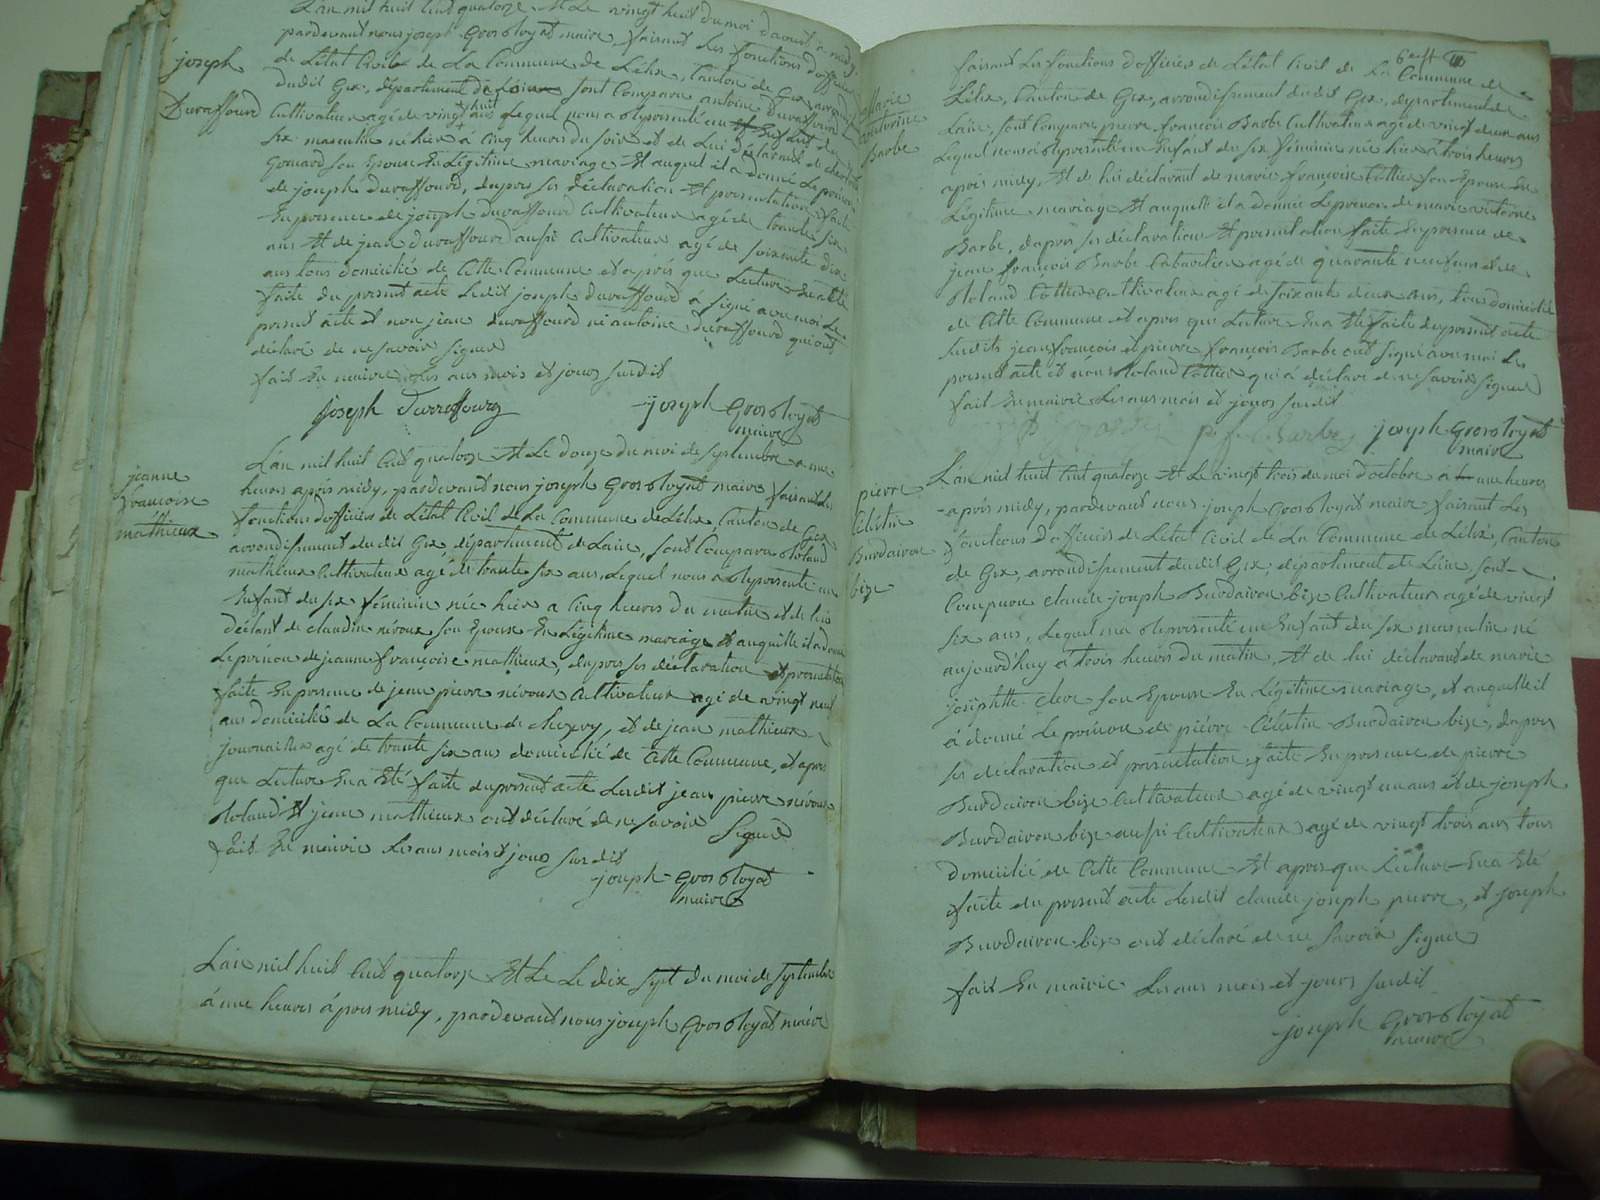 L'an mil huit Cent quatorze Et Le vingt huit du moi d'aoust à midy
pardevant nous joseph Grosgloyat maire, faisant les fonctions d'officier
de L'état Civil de La Commune de Lélix, Canton de Gex, arrond
dudit Gex, département de Lain sont Comparu antoine Duraffourd
joseph
Duraffourd
Cultivateur agé de vingt huit ans Lequel nous a Représenté un Enfant du
sex masculin né hier à Cinq heures du soir et de Lui déclarant de charlotte
Gonard son Epouse En Légitime mariage Et auquel il a donné Le prénom
de joseph duraffourd, dapres ses déclaration Et présentation faite
En présence de joseph duraffourd Cultivateur agé de trante six
ans Et de jean duraffourd aussi Cultivateur agé de soixante dix
ans tous domicilié de Cette Commune et après que Lecture En a Eté
faite du present acte Ledit joseph duraffourd à signé avec moi Le
present acte et non jean duraffourd ni antoine duraffourd qui ont
déclaré de ne savoir signer
fait En mairie Les ans mois et jours susdit
joseph Durraffourg joseph Grosgloyat
maire
jeanne
françoise
mathieux
L'an mil huit Cent quatorze Et Le douze du moi de septembre a une
heures après midy, pardevant nous joseph Grosgloyat maire faisant Les
fonctions d'officier de L'état Civil de La Commune de Lélix Canton de Gex
arrondissement dudit Gex, département de Lain, sont Comparu Roland
mathieux Cultivateur agé de trante six ans Lequel nous a Représenté un
Enfant du sex féminin née hier a Cinq heures du matin et de lui
déclant de claudine névoux son Epoux En Légitime mariage Et auquelle il a donné
Le prénom de jeanne françoise mathieux, dapres ses déclaration Et présentation
faite En présence de jean pierre névoux Cultivateur agé de vingt neuf
ans domicilié de La Commune de chezery, et de jean mathieux
journailier agé de trante six ans domicilié de Cette Commune, et apres
que Lecture En a Eté faite du present acte Lesdit jean pierre névoux
Roland Et jean mathieux ont déclaré de ne savoir signer
fait En mairie Les ans mois et jours susdit
joseph Grosgloyat
maire
L'an mil huit Cent quatorze Et Le Le dix sept du moi de septembre
à une heures après midy, pardevant nous joseph Grosgloyat maire
faisant Les fonctions d'officier de L'état Civil de La Commune de
Lélix, Canton de Gex, arrondissement dudit Gex, département de
Marie
victorine
Barbe
Lain, sont Comparu pierre françois Barbe Cultivateur agé de vingt deux ans
Lequel nous à Représenté un Enfant du sex féminin née hier à trois heures
après midy, Et de lui déclarant de marie françoise Cottier son Epouse En
Légitime mariage Et auquelle il a donnée Le prénom de marie victorine
Barbe, dapres ses déclaration Et présentation faite En présence de
jean françois Barbe Cabaretier agé de quarante neuf ans et de
Roland Cottier Cultivateur agé de soixante deux ans, tous domicilié
de Cette Commune et apres que Lecture En a Eté faite du present acte
Lesdits jean françois et pierre françois Barbe ont signé avec moi Le
present acte et non Roland Cottier qui à déclaré de ne savoir signer
fait En mairie Les ans mois et jours susdit
p. f. Barbe joseph Grosgloyat
maire
pierre
Célestin
Burdairon
bize
L'an mil huit Cent quatorze Et Le vingt trois du moi d'octobre à une heures
après midy, pardevant nous joseph Grosgloyat maire faisant Les
fonctions d'officiers de L'état Civil de La Commune de Lélix, Canton
de Gex, arrondissement dudit Gex, département de Lain, sont
Comparu claude joseph Burdairon bize Cultivateur agé de vingt
six ans, Lequel ma Représenté un Enfant du sex masculin né
aujourd'huy à trois heures du matin, Et de lui déclarant de marie
josephtte clere son Epouse En Légitime mariage, et auquelle il
à donné Le prénom de pierre Célestin Burdairon bize, dapres
ses déclaration et présentation faite En présence de pierre
Burdairon bize Cultivateur agé de vingt un ans et de joseph
Burdairon bize aussi Cultivateur agé de vingt trois ans tous
domicilié de Cette Commune Et apres que Lecture En a Eté
faite du present acte Lesdit claude joseph pierre, et joseph
Burdairon bize ont déclaré de ne savoir signer
fait En mairie Les ans mois et jours susdit
joseph Grosgloyat
maire